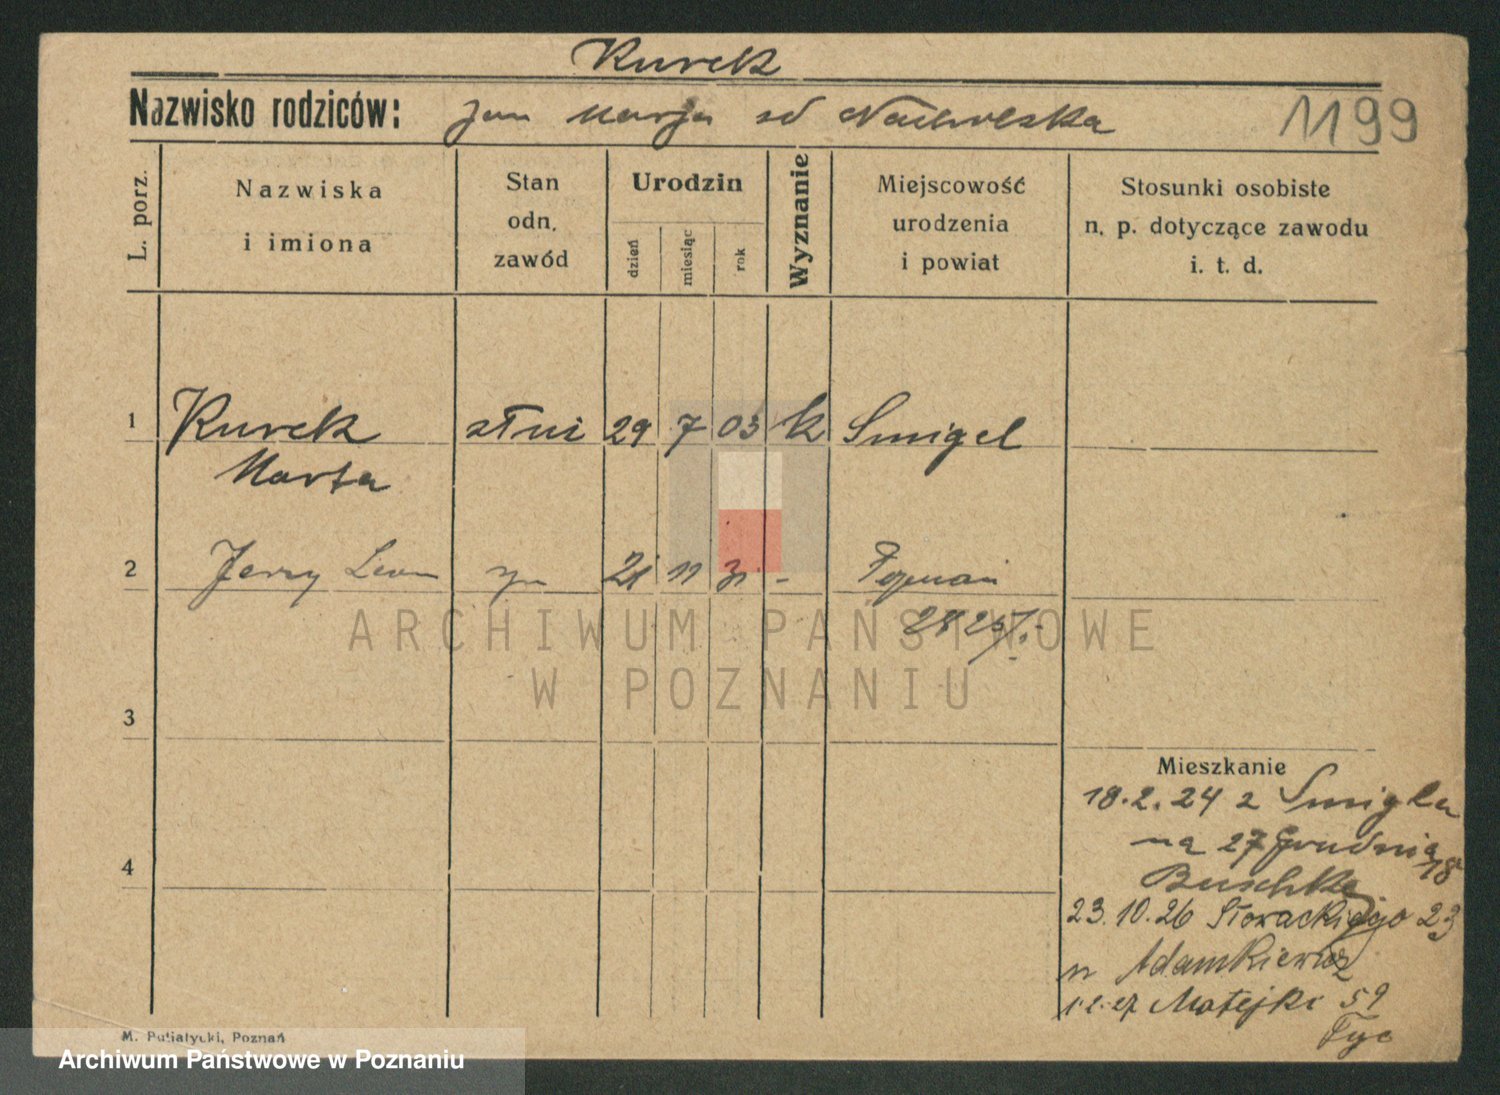 Kurek
Nazwisko rodziców: Jan Marja sd
1199
L. porz.
Nazwiska
i imiona
Stan
odn.
zawód
Urodzin
dzień
miesiąc
rok
Wyznanie
Miejscowość
urodzenia
i powiat
Stosunki osobiste
n. p. dotyczące zawodu
i. t. d.
1 Kurek służ 29 7 03 k Smigel
Marta
2 Jerzy Leon syn 21 11 31 - Poznań
ARCHIWUM PAŃSTWOWE
W POZNANIU
3
4
Mieszkanie
18.2.24 z Smigla
na 27 Grudnia
18
23.10.26 Słowackiego 23
Adamkiewicz
1.2.27 Matejki 59
M. Putiatycki, Poznań
Archiwum Państwowe w Poznaniu